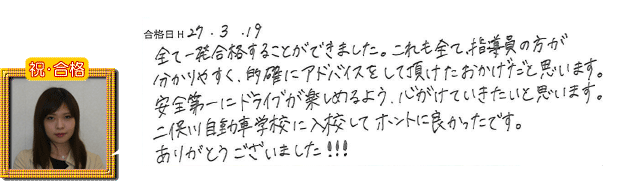 合格日 H 27.3.19
全て一発合格することができました。これも全て、指導員の方が
祝・合格
分かりやすく、的確にアドバイスをして頂けたおかげだと思います。
安全第一にドライブが楽しめるよう、心がけていきたいと思います。
二俣川自動車学校に入校してホントに良かったです。
ありがとうございました!!!